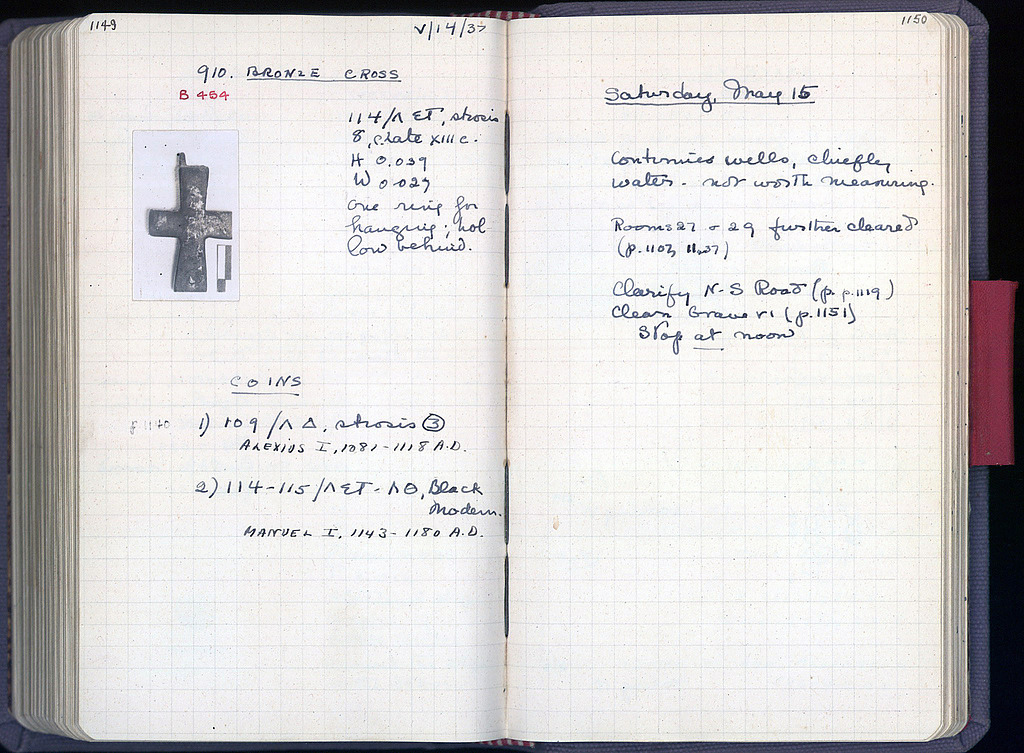 1149
V/14/37
910. BRONZE CROSS
B 454
114/Λ ΣΤ, strosis
8, late XIII c.
H 0.039
W 0.027
one ring for
hanging; hol-
low behind.
COINS
1) 109/Λ Δ, strosis ③
ALEXIUS I, 1081-1118 A.D.
2) 114-115/ΛΣΤ-ΛΘ, Black
Modern.
MANUEL I, 1143-1180 A.D.
1150
Saturday, May 15
Continues wells, chiefly
water - not worth measuring.
Rooms 27 + 29 further cleared
(p. 1107, 1137)
Clarify N-S Road (p. p. 1119)
Clean Grave VI (p. 1151)
Stop at noon